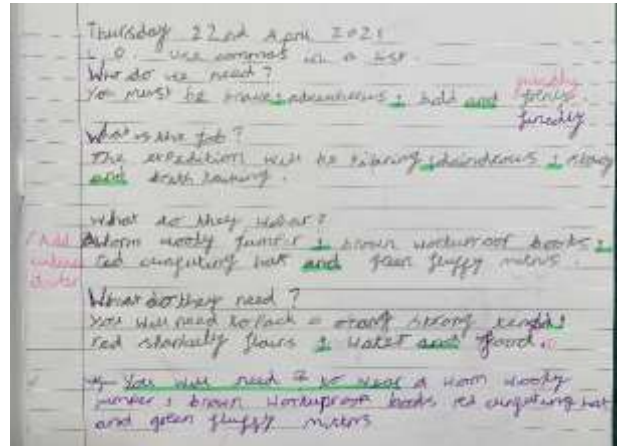 Thursday 22nd April 2021
L.O. use commas in a list.
Who do we need?
You must be brave, adventeous, bold and
What is the job?
The expedition will be tibring, dainderous, slowy
and breath taking.
What do they wear?
Add
A worm wooly jumper, brown worterproof books,
red cunfuting hat and green fluffy mitins.
What do they need?
You will need to pack a orang strong tend,
red flairs, water and food.
You will need to wear a worm wooly
jumper, brown worterproof books red cunfuting hat
and green fluffy mittins